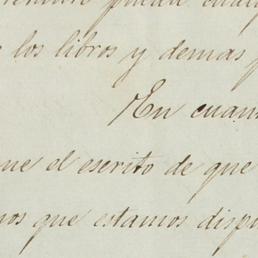 puedan
los libros y demas
En cuan
ne el escrito de que
nos que estamos disp